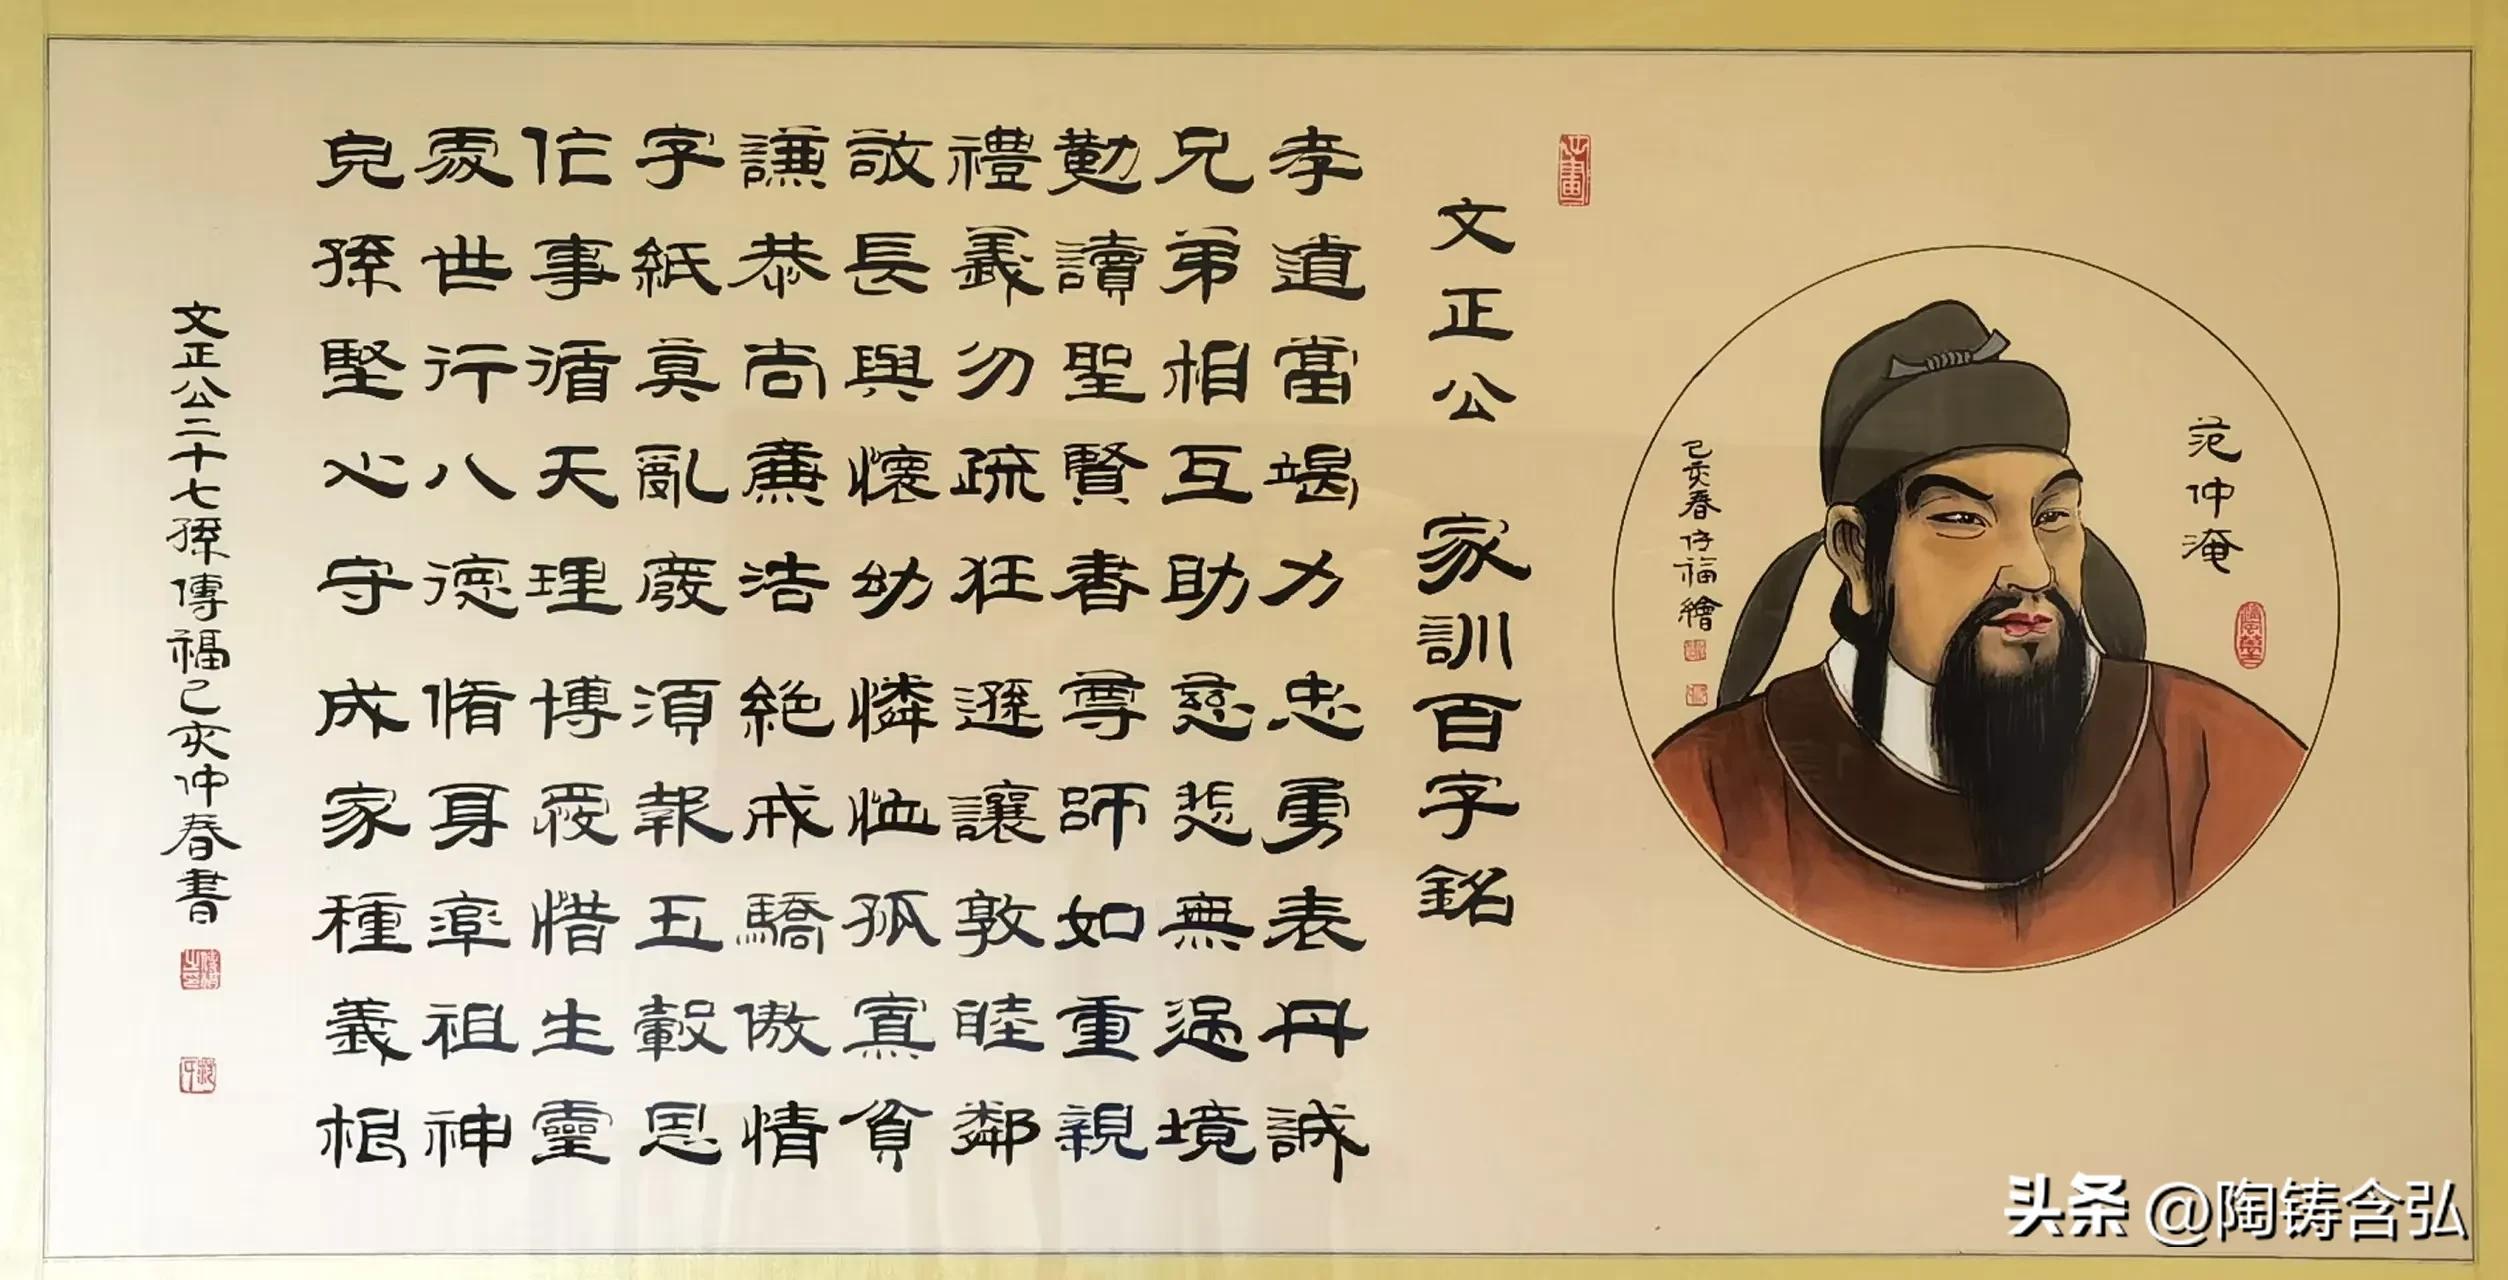 范仲淹
己亥春福繪
文正公 家訓百字銘
孝道當竭力忠勇表丹誠
兄弟相互助慈悲無過境
勤讀聖賢書尊師如重親
禮義勿疏狂遜讓敦睦鄰
敬長與懷幼憐恤孤寡貧
謙恭尚廉洁絕戒驕傲情
字紙莫亂廢須報五穀恩
作事循天理博愛惜生靈
處世行八德脩身率祖神
兒孫堅心守成家種義根
文正公二十七孫傳福己亥仲春書
头条 @陶铸含弘